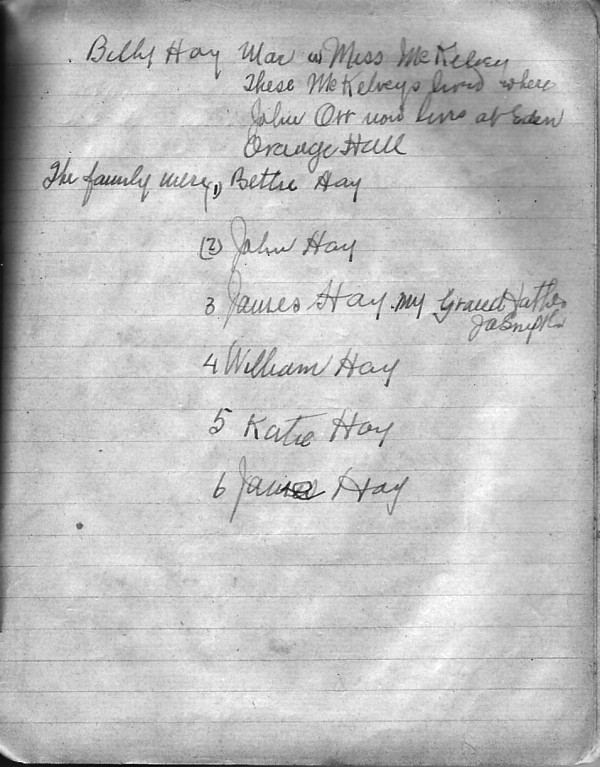 Billy Hay Mar w Miss McKelvey
These McKelveys lived where
John Orr now lives at Eden
Orange Hall
The family were, 1) Bettie Hay
(2) John Hay
3 James Hay. my Grand father
4 William Hay
5 Katie Hay
6 James Hay